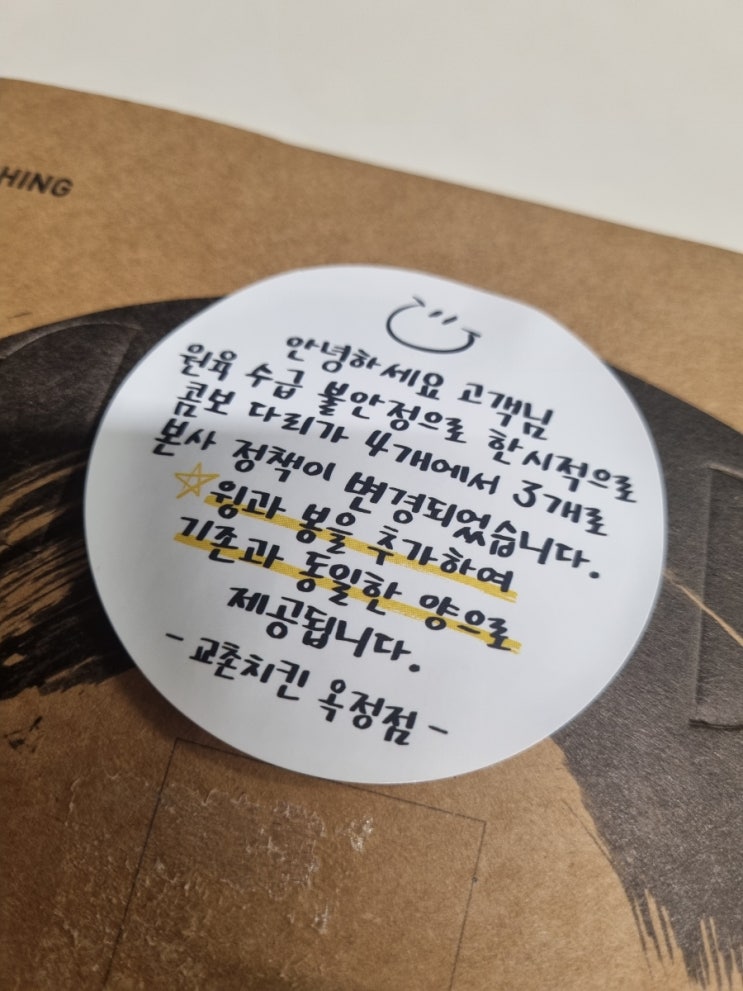 HING
안녕하세요 고객님
원육 수급 불안정으로 한시적으로
콤보 다리가 4개에서 3개로
본사 정책이 변경되었습니다.
☆윙과 봉을 추가하여
기존과 동일한 양으로
제공됩니다.
- 교촌치킨 옥정점 -